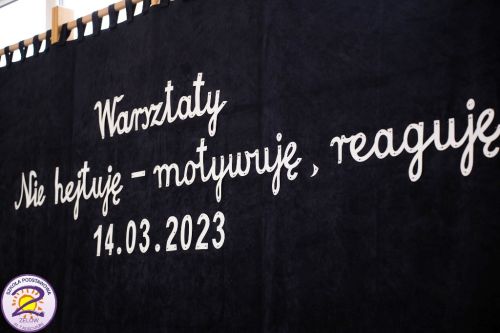 Warsztaty
Nie hejtuję - motywuję, reaguję
14.03.2023
SZKOŁA PODSTAWOWA
2
ZELÓW